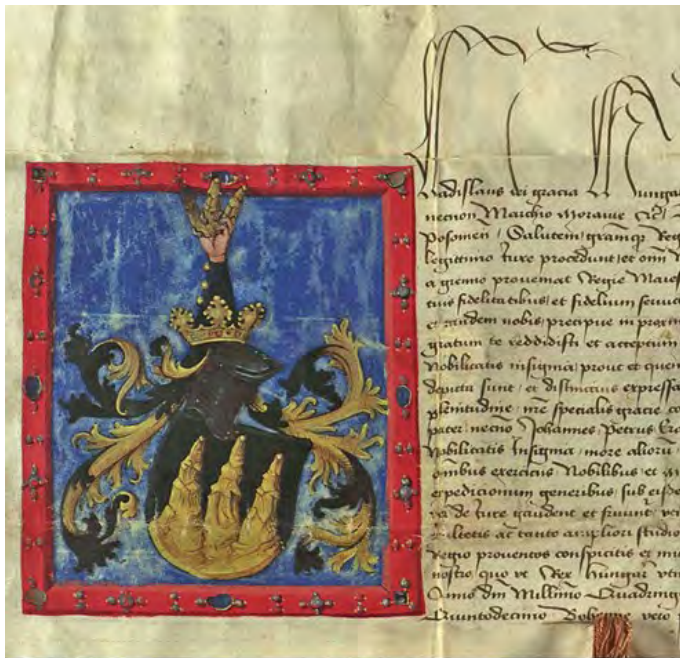 Wladislaus dei gracia Hungar
necnon Marchio Moravie
Posonien Salutem gramqz Reg
legittimo iure procedunt et omn
a gremio proveniat Regie Maies
tuis fidelitatibus et fidelium servic
et tandem nobis precipue in proxim
gratum te reddidisti et acceptum
Nobilitatis insignia prout et quem
depicta sunt et distinctius expressa
plenitudine nre specialis gracie co
pater necno Johannes Petrus Era
Nobilitatis Insignia more alioru
omnibus exerciciis Nobilibus et
expedicionum generibus sub eisde
de iure gaudent et fruunt
ac tanto ampliori studio
Regio proventos conspicitis et
nostro quo ut Rex hungar
Anno dni Millimo Quadring
Quintodecimo Bohemie vero